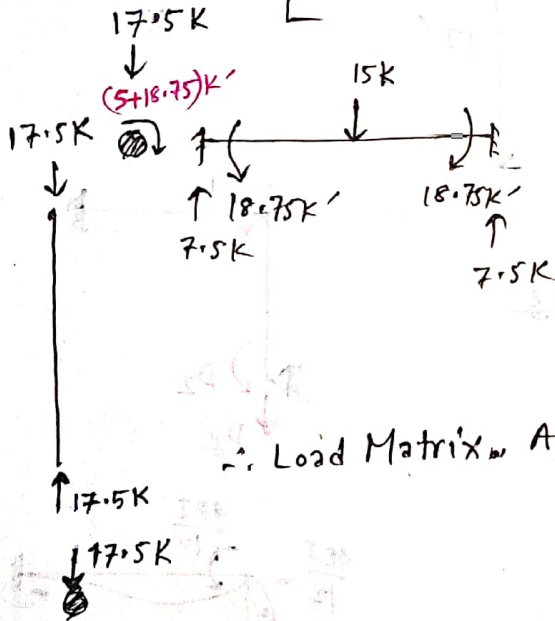 17.5K
(5+18.75)K'
15K
17.5K
18.75K'
18.75K'
7.5K
7.5K
∴ Load Matrix A
17.5K
17.5K